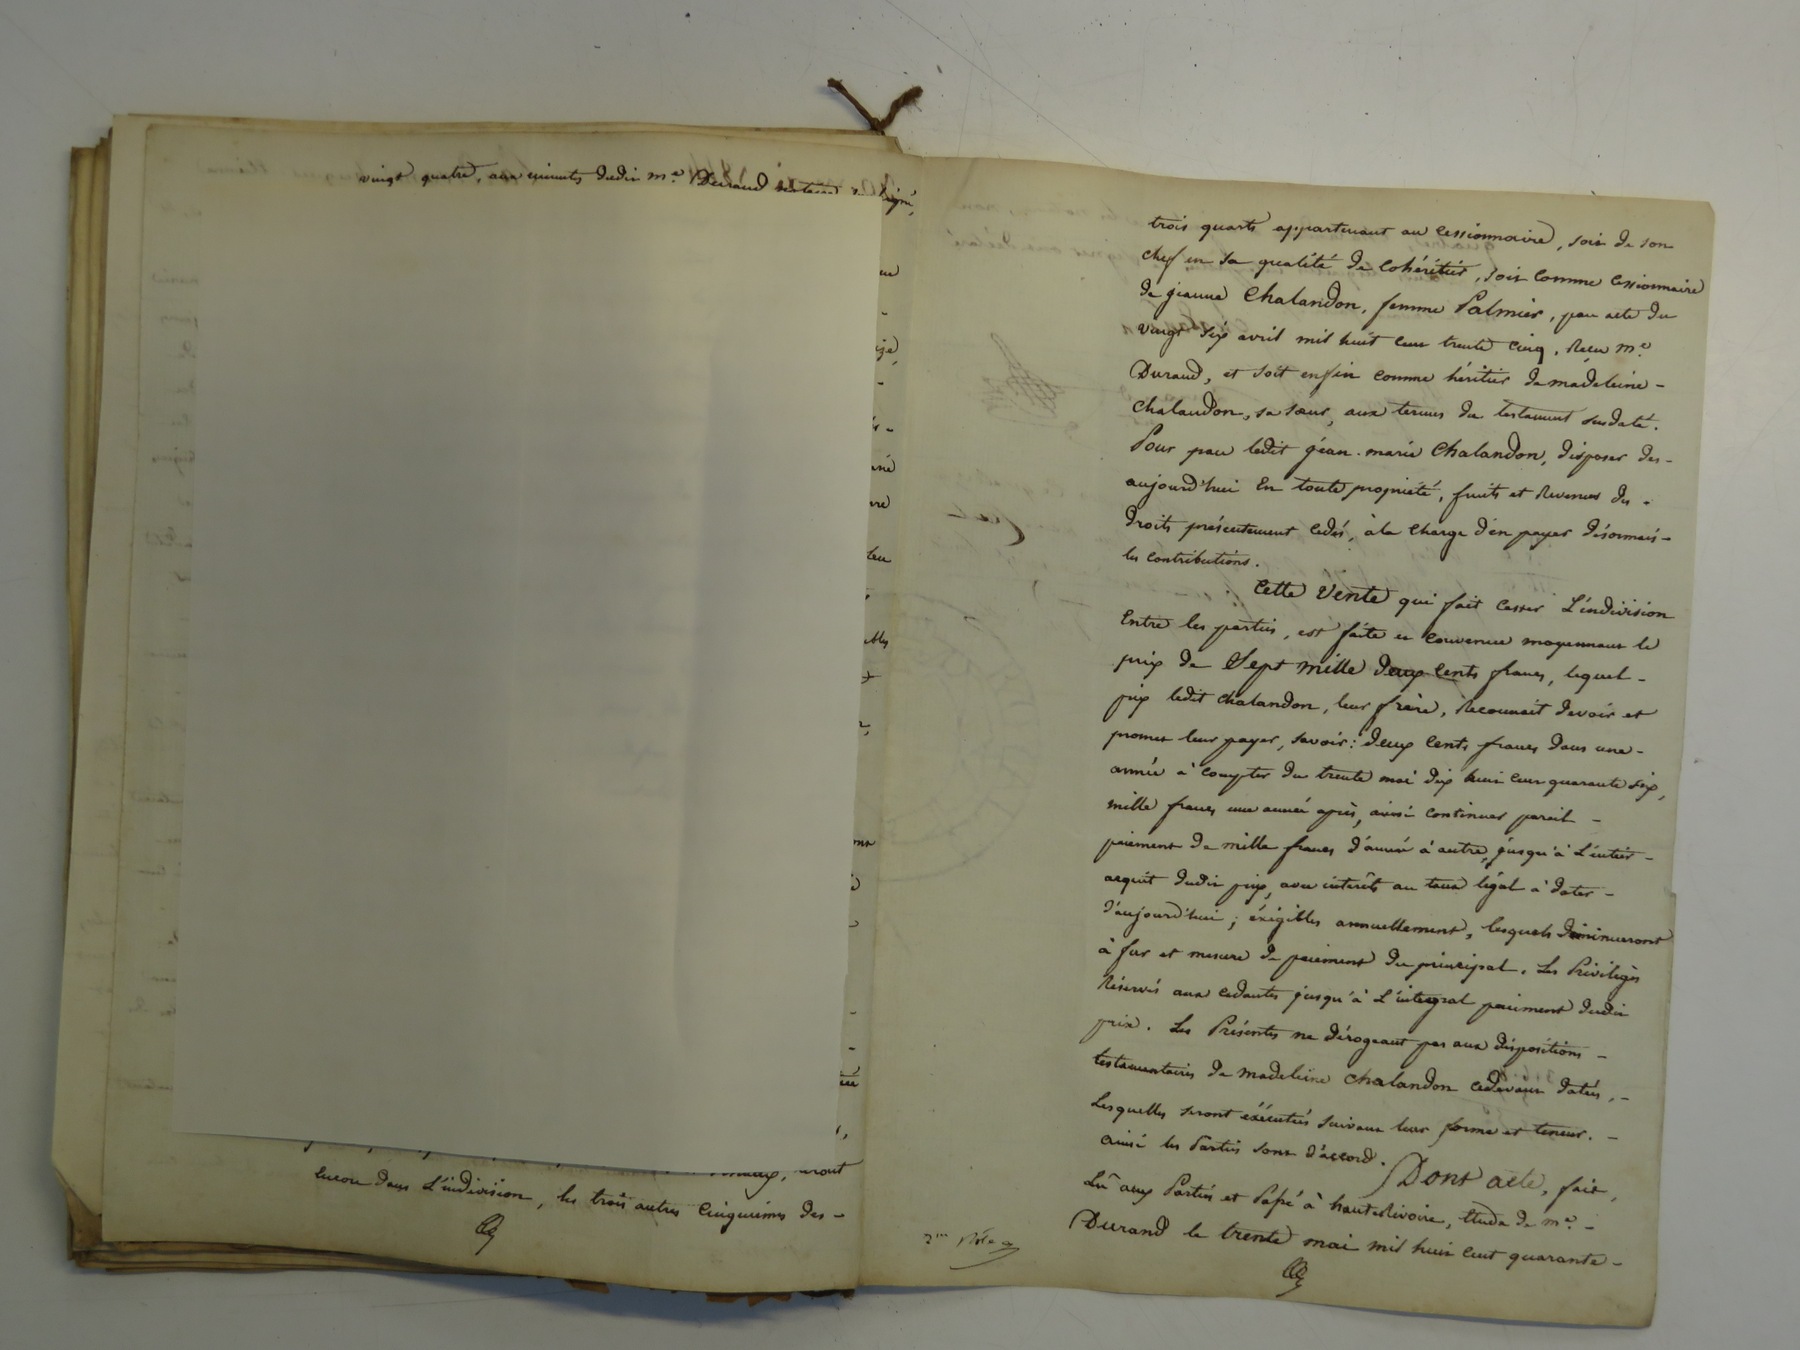 vingt quatre, aux minutes dudit me. Durand notaire
encore dans L'indivision, les trois autres cinquièmes des -
trois quarts appartenant au cessionnaire, soit de son
chef en sa qualité de cohéritier, soit comme cessionnaire
de jeanne Chalandon, femme Palmier, par acte du
vingt six avril mil huit cent trente cinq, Recu me.
Durand, et soit enfin comme héritier de madeleine -
Chalandon, sa sœur, aux termes du testament susdaté.
Pour par ledit jéan-marie Chalandon, disposer des-
aujourd'hui En toute propriété, fruits et Revenus des -
droits présentement cedés, à la charge d'en payer désormais -
les contributions.
Cette Vente qui fait cesser L'indivision
Entre les parties, est faite et convenue moyennant le
prix de Sept mille deux cents francs, lequel -
prix ledit Chalandon, leur frère, Reconnait devoir et
promet leur payer, savoir: deux cents francs dans une -
année à compter du trente mai dix huit cent quarante six,
mille francs une année après, ainsi continuer pareil -
paiement de mille francs d'année à autre, jusqu'à L'entier -
acquit dudit prix, avec intérêts au taux légal à dater -
d'aujourd'hui; éxigibles annuellement, lesquels diminueront
à fur et mesure de paiement du principal. Les Privilèges
Réservés aux cedantes jusqu'à L'integral paiement dudit
prix. Les Présentes ne dérogeant pas aux dispositions -
testamentaires de madeleine Chalandon cidevant datées, -
Lesquelles seront éxécutées suivant leur forme et teneur. -
ainsi les Parties sont d'accord. Dont acte, fait,
Lu aux Parties et Passé à hauterivoire, Etude de me. -
Durand le trente mai mil huit cent quarante -
Rôle